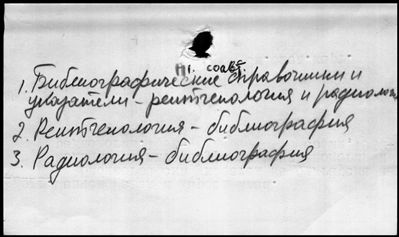 1. Библиографические справочники и
указатели - рентгенология и радиология
2. Рентгенология - библиография
3. Радиология - библиография